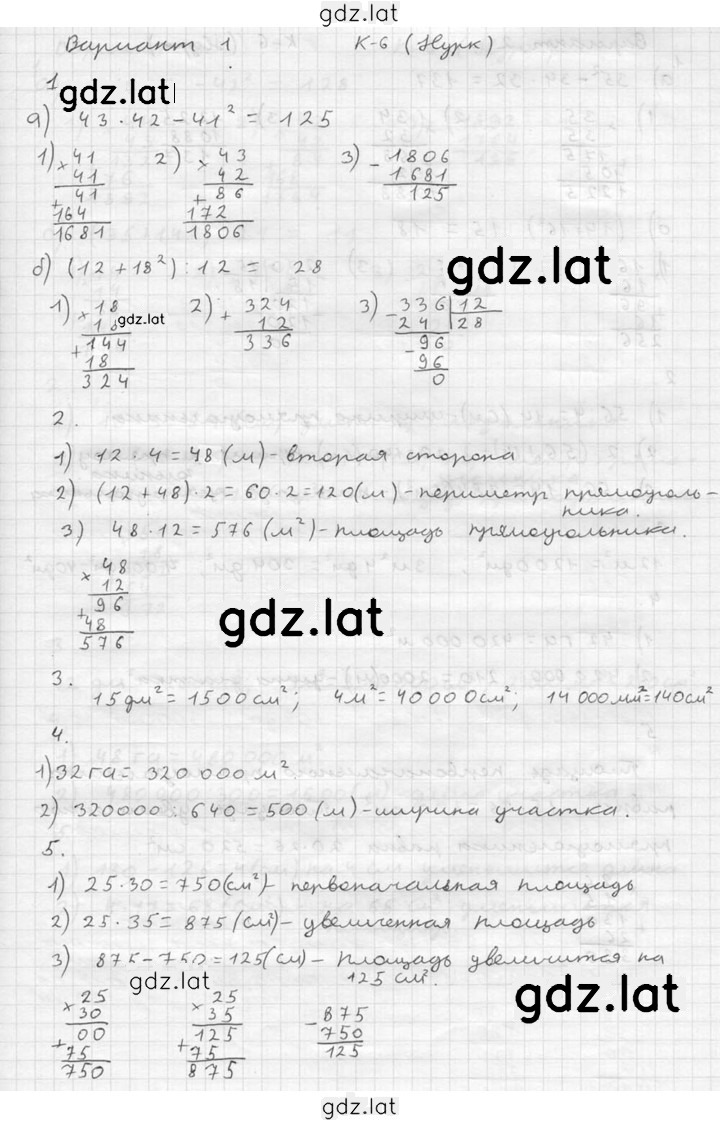 gdz.lat
Вариант 1 К-6 (Нурк)
1.
gdz.lat
а) 43 · 42 − 41² = 125
1) × 41 2) × 43 3) − 1806
41 42 1681
+ 41 + 86 125
164 172
1681 1806
б) (12 + 18²) : 12 = 28
gdz.lat
1) × 18 2) + 324 3) − 336 | 12
18 gdz.lat 12 24 28
+ 144 336 − 96
18 96
324 0
2.
1) 12 · 4 = 48 (м) - вторая сторона
2) (12 + 48) · 2 = 60 · 2 = 120 (м) - периметр прямоуголь-
ника.
3) 48 · 12 = 576 (м²) - площадь прямоугольника.
× 48
12
+ 96
48
576
gdz.lat
3.
15 дм² = 1500 см²; 4 м² = 40 000 см²; 14 000 мм² = 140 см²
4.
1) 32 га = 320 000 м²
2) 320000 : 640 = 500 (м) - ширина участка.
5.
1) 25 · 30 = 750 (см²) - первоначальная площадь
2) 25 · 35 = 875 (см²) - увеличенная площадь
3) 875 − 750 = 125 (см) - площадь увеличится на
125 см².
gdz.lat
× 25 × 25 − 875
30 35 750
00 125 125
+ 75 + 75
750 875
gdz.lat
gdz.lat